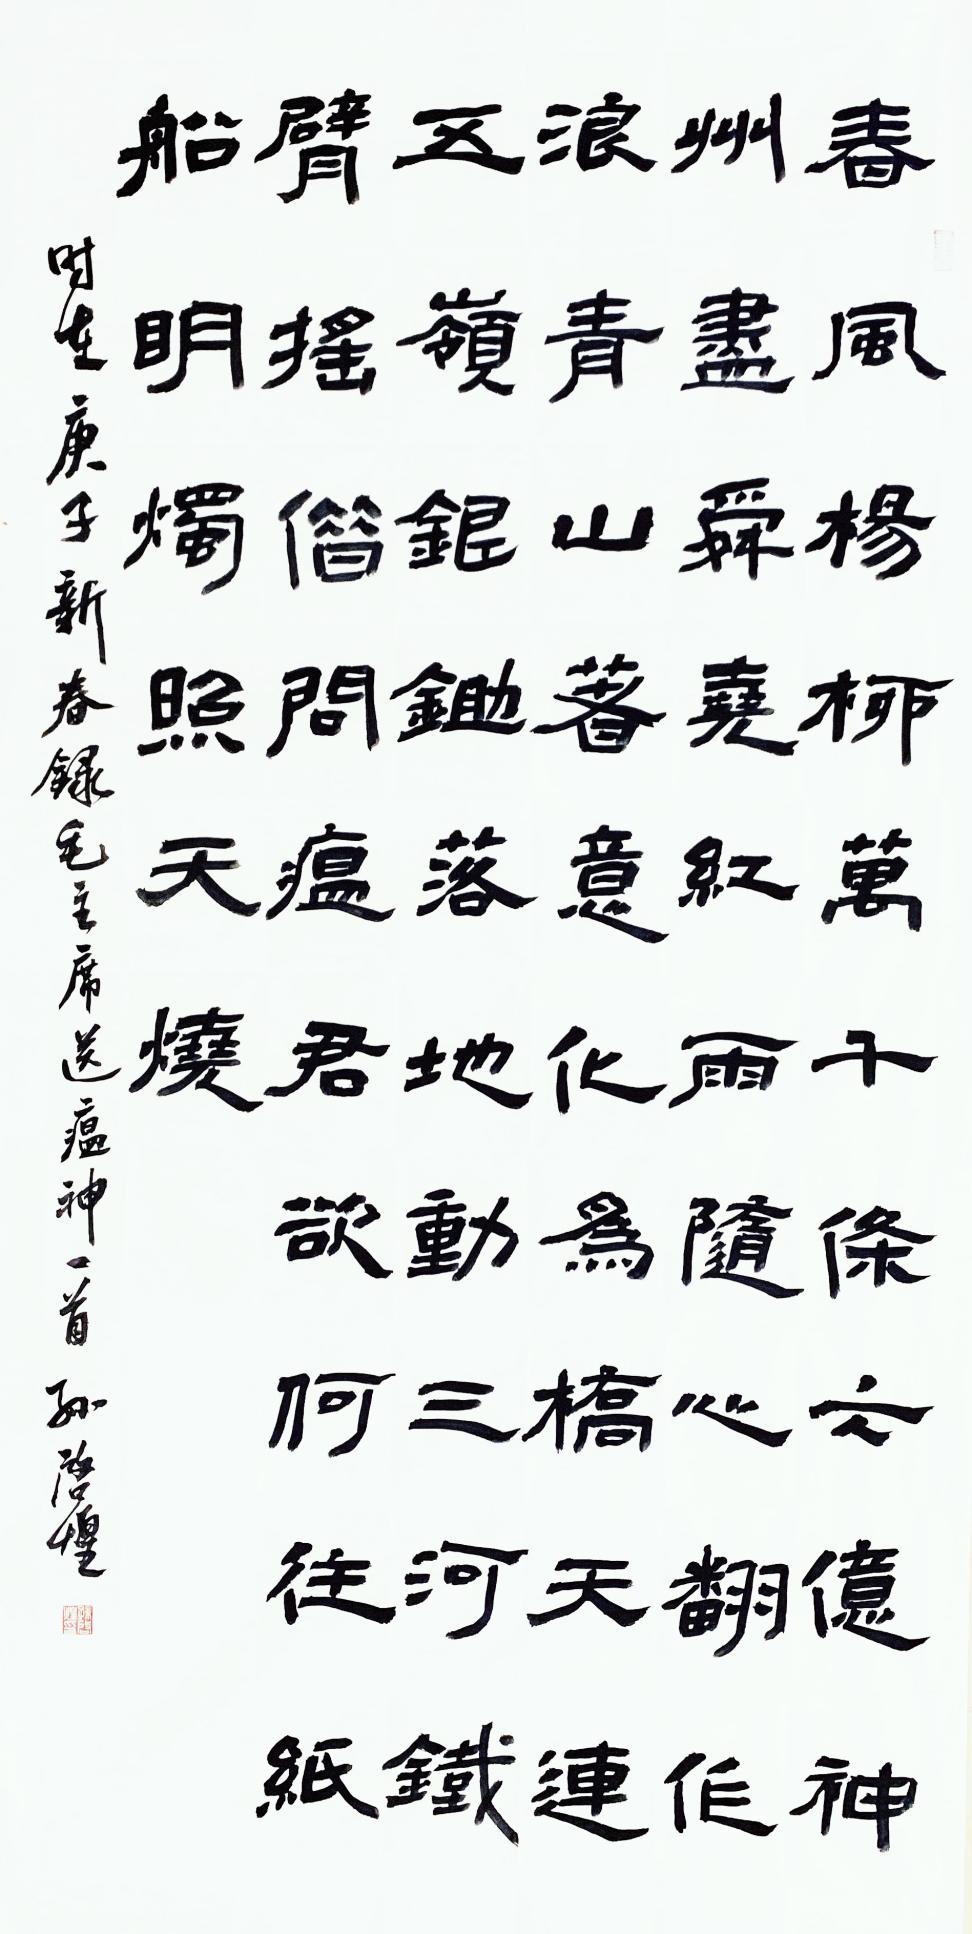 春風楊柳萬千條六億神
州盡舜堯紅雨隨心翻作
浪青山著意化爲橋天連
五嶺銀鋤落地動三河鐵
臂搖借問瘟君欲何往紙
船明燭照天燒
时在庚子新春録毛主席送瘟神一首 孙啓